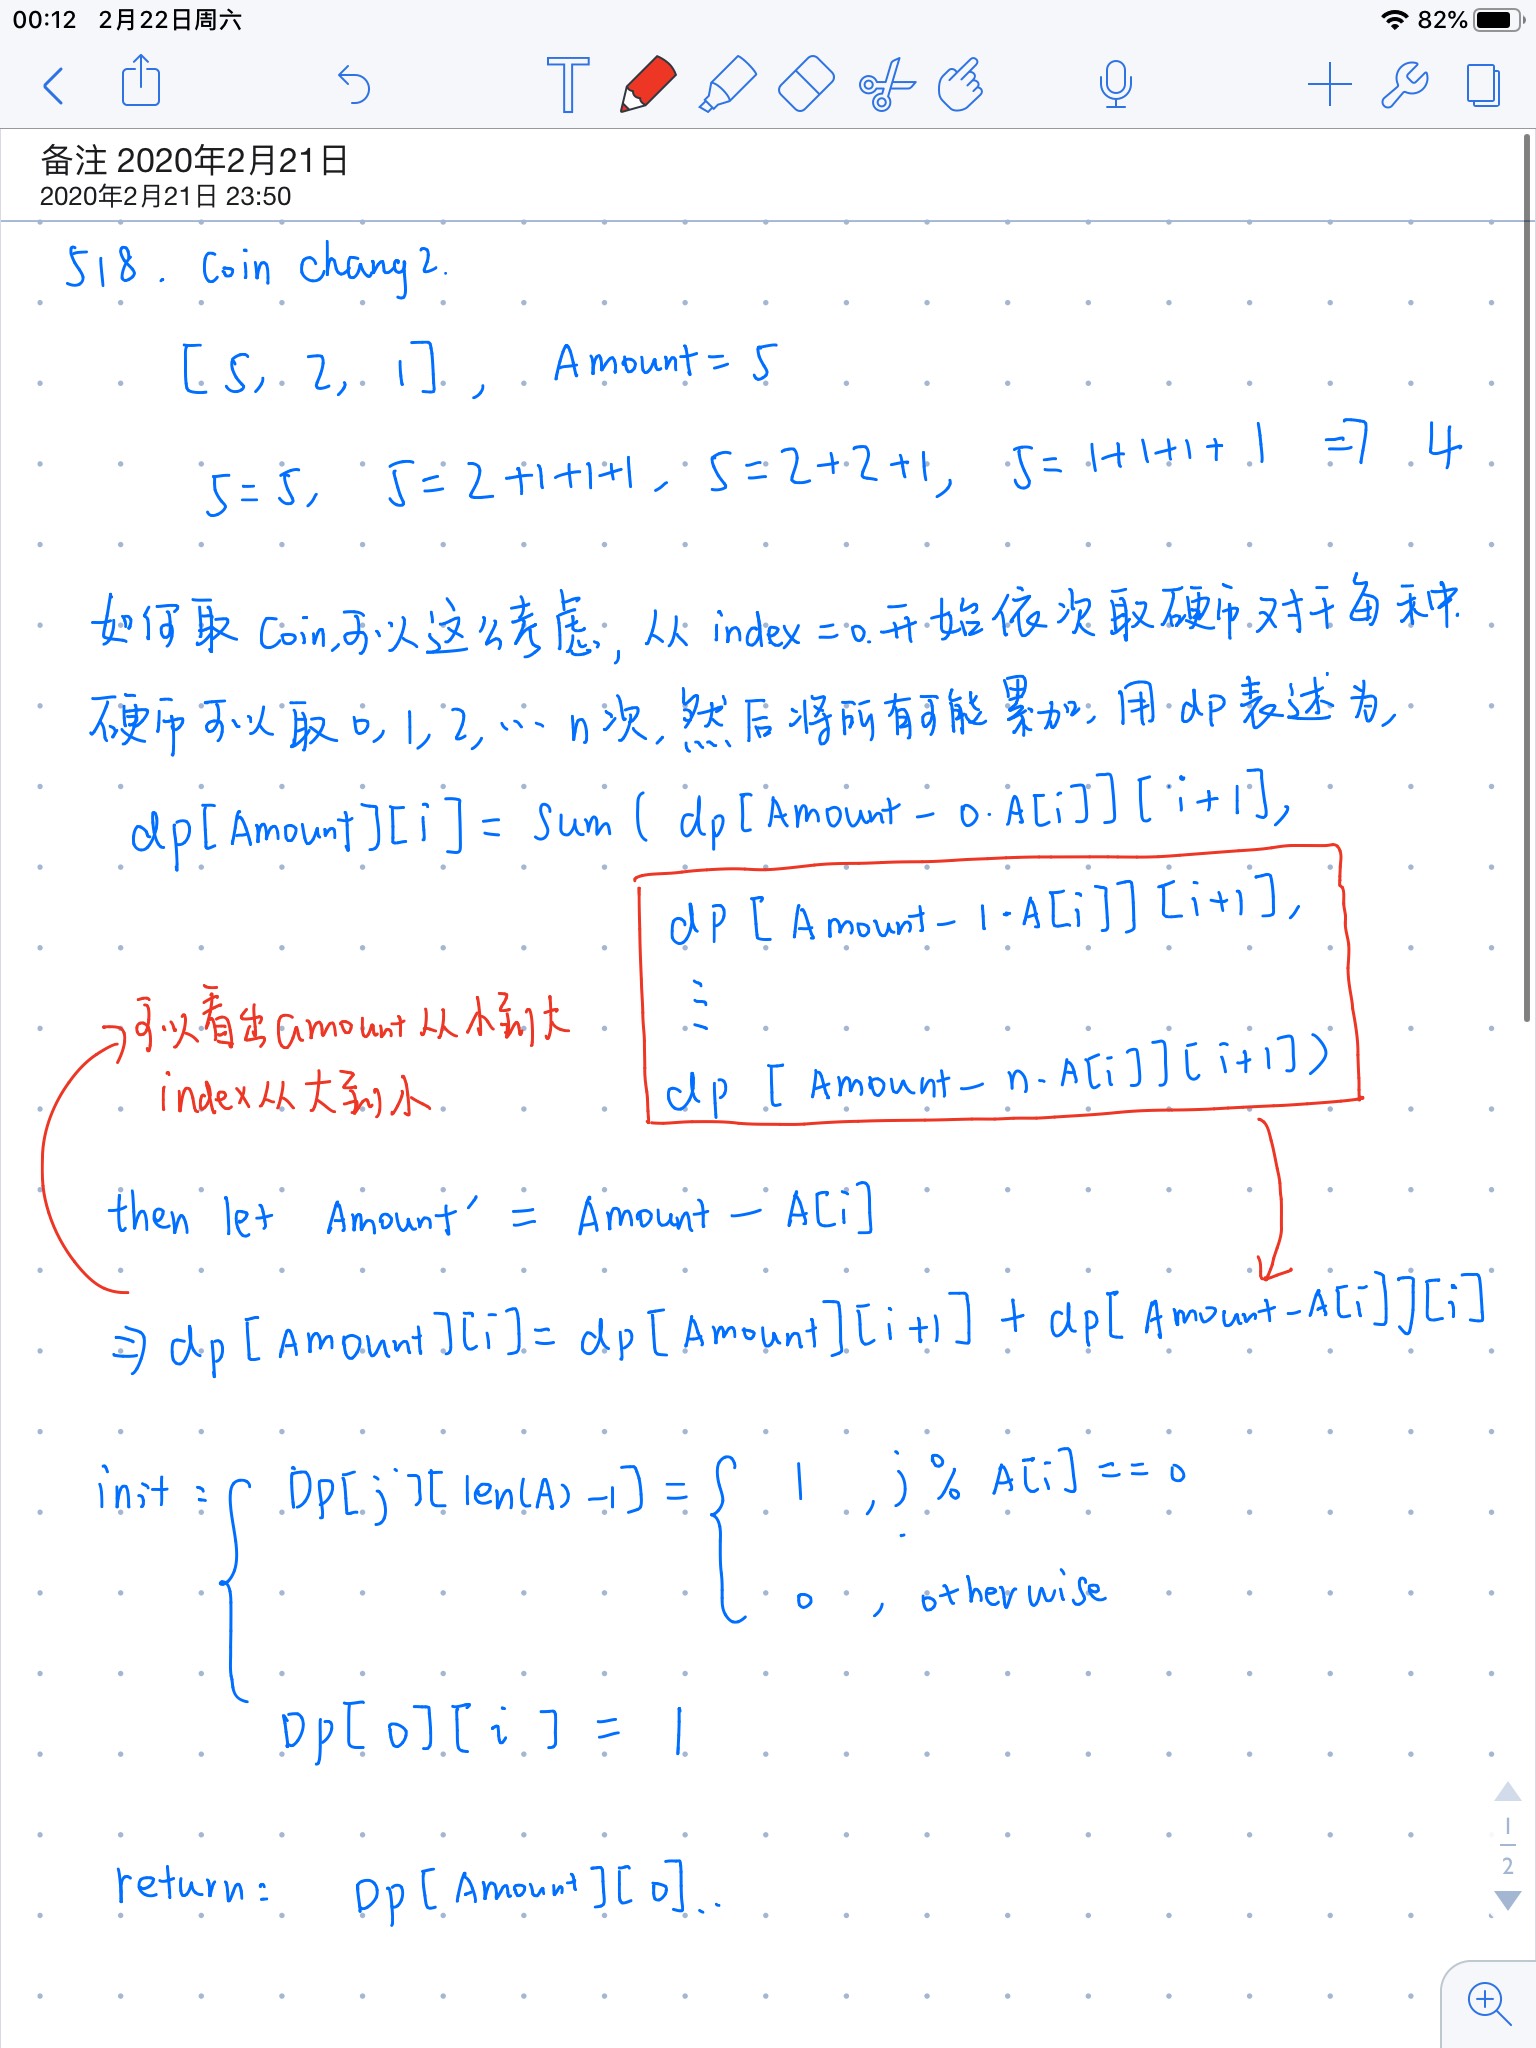 00:12 2月22日周六 82%
备注 2020年2月21日
2020年2月21日 23:50
518. Coin chang2.
[5, 2, 1], Amount = 5
5=5, 5=2+1+1+1, 5=2+2+1, 5=1+1+1+1 => 4
如何取 coin,可以这么考虑, 从 index=0.开始依次取硬币对于每种
硬币可以取 0,1,2,... n次,然后将所有可能累加,用 dp表述为,
dp[Amount][i] = Sum( dp[Amount - 0·A[i]][i+1],
dp[Amount - 1·A[i]][i+1],
⋮
dp[Amount - n·A[i]][i+1])
可以看出amount从小到大
index从大到小
then let Amount' = Amount - A[i]
=> dp[Amount][i] = dp[Amount][i+1] + dp[Amount-A[i]][i]
init: { Dp[j][len(A)-1] = { 1, j % A[i] == 0
0, otherwise
Dp[0][i] = 1
return: Dp[Amount][0]..
1
2